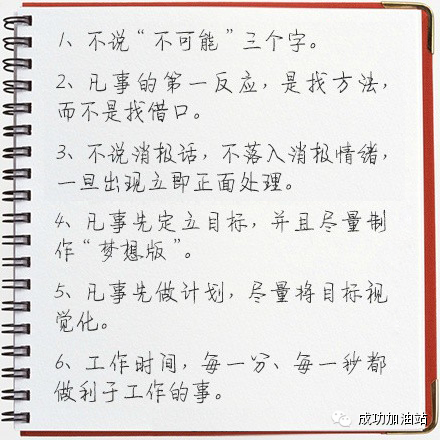 1、不说“不可能”三个字。
2、凡事的第一反应，是找方法，
而不是找借口。
3、不说消极话，不落入消极情绪，
一旦出现立即正面处理。
4、凡事先定立目标，并且尽量制
作“梦想版”。
5、凡事先做计划，尽量将目标视
觉化。
6、工作时间，每一分、每一秒都
做利于工作的事。
成功加油站